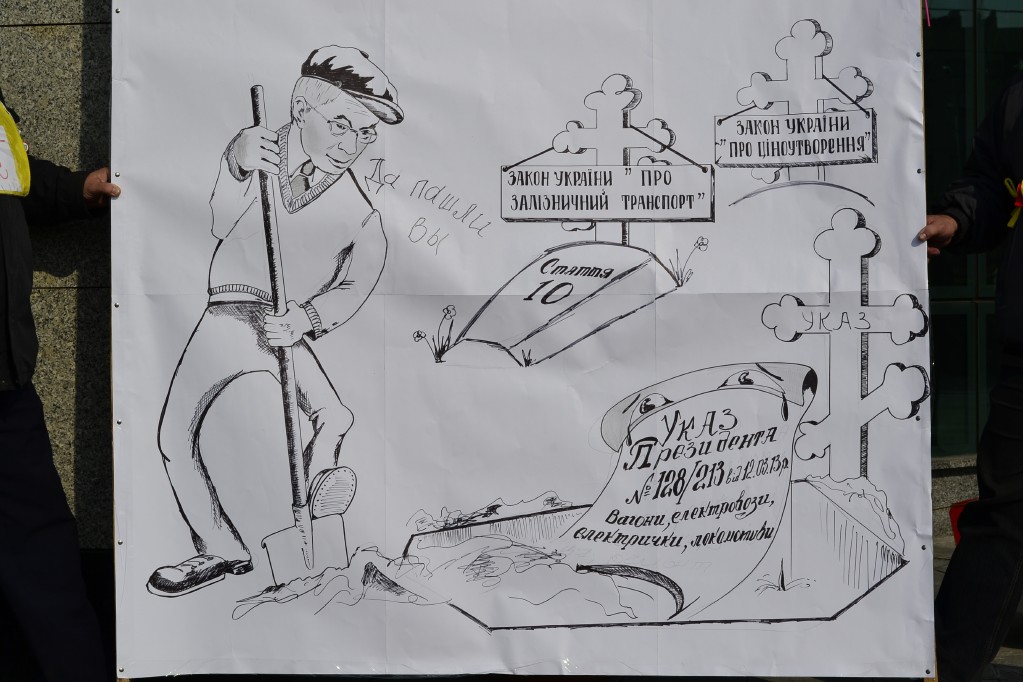 Да пашли
вы
ЗАКОН УКРАЇНИ "ПРО
ЗАЛІЗНИЧНИЙ ТРАНСПОРТ"
Стаття
10
ЗАКОН УКРАЇНИ
"ПРО ЦІНОУТВОРЕННЯ"
УКАЗ
Указ
Президента
№ 128/213 від 12.03.13р
Вагони, електровози,
електрички, локомотиви